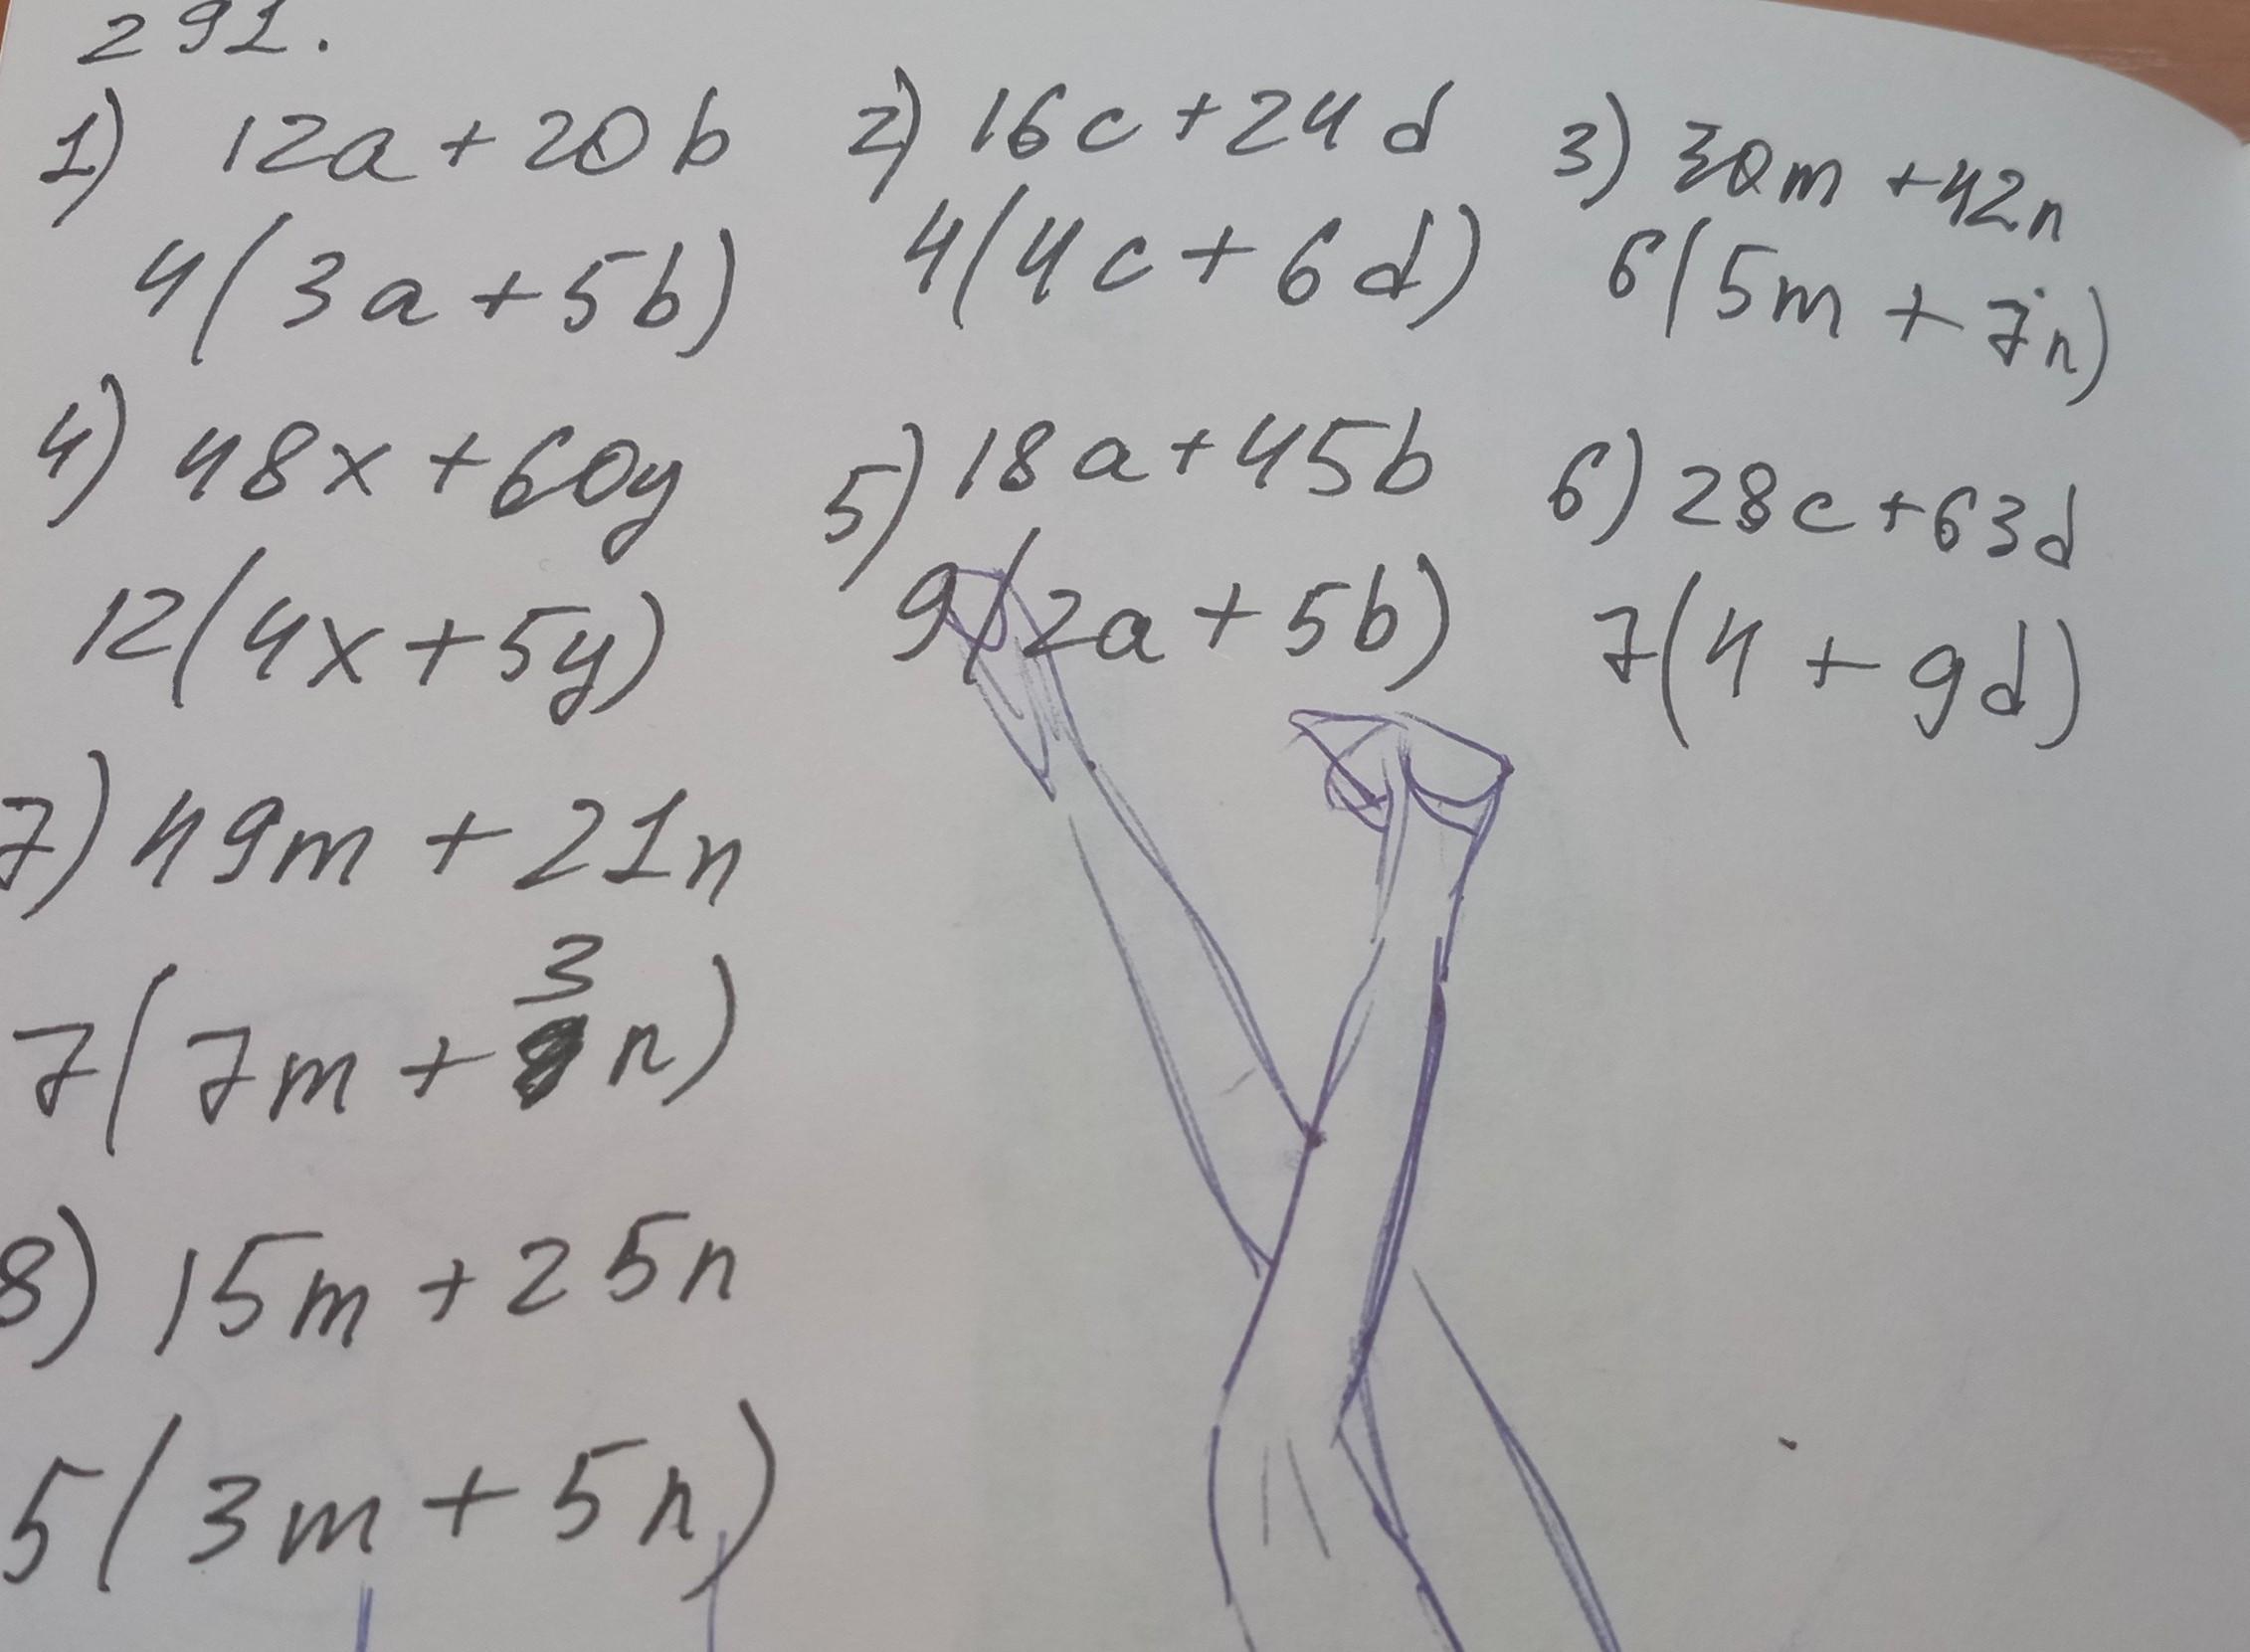 291.
1) 12a + 20b
4(3a + 5b)
2) 16c + 24d
4(4c + 6d)
3) 30m + 42n
6(5m + 7n)
4) 48x + 60y
12(4x + 5y)
5) 18a + 45b
9(2a + 5b)
6) 28c + 63d
7(4 + 9d)
7) 49m + 21n
7(7m + 3n)
8) 15m + 25n
5(3m + 5n)